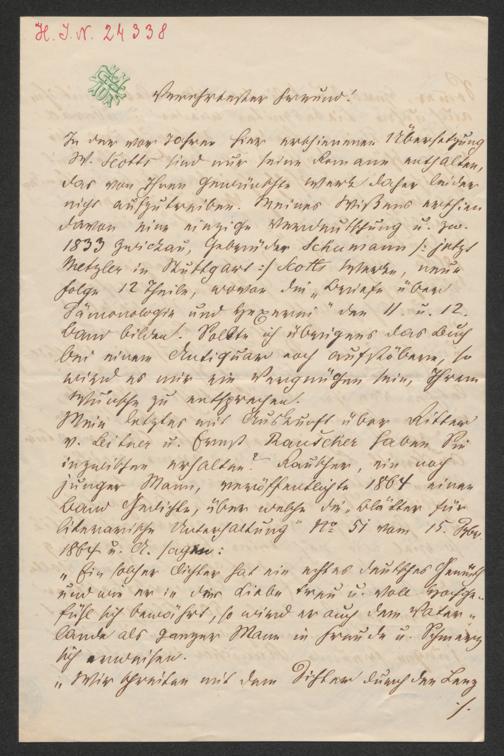 H. I. N. 24338
Verehrtester Freund!
In der vor Jahren hier erschienenen Übersetzung
W. Scotts sind nur seine Romane enthalten,
das von Ihnen gewünschte Werk daher leider
nicht aufzutreiben. Meines Wißens erschien
davon eine einzige Verdeutschung u. zw.
1833 Zwickau, Gebrüder Schumann /: jetzt
Metzler in Stuttgart :/ Scotts Werke, neue
Folge 12 Theile, wovon die „Briefe über
Dämonologie und Hexerei" den 11. u. 12.
Band bilden. Sollte ich übrigens das Buch
bei einem Antiquar noch aufstöbern, so
wird es mir ein Vergnügen sein, Ihrem
Wunsche zu entsprechen.
Mein letztes mit Auskunft über Ritter
v. Leitner u. Ernst Rauscher haben Sie
inzwischen erhalten? Rauscher, ein noch
junger Mann, veröffentlichte 1864 einen
Band Gedichte, über welche die „Blätter für
literarische Unterhaltung" No 51 vom 15. Dzbr
1864 u. A. sagen:
„Ein solcher Dichter hat ein echtes deutsches Gemüth
und wie er in der Liebe treu u. voll Hochge-
fühl sich bewährt, so wird er auch dem Vater-
lande als ganzer Mann in Freude u. Schmerz
sich erweisen.
„Wir schreiten mit dem Dichter durch den Lenz
./.